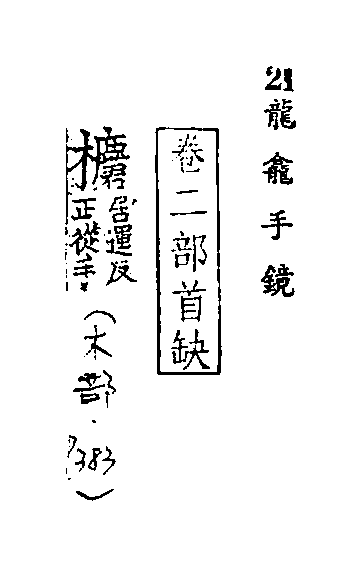 21龍龕手鏡
卷二部首缺
居運反
正從手
(木部.P383)